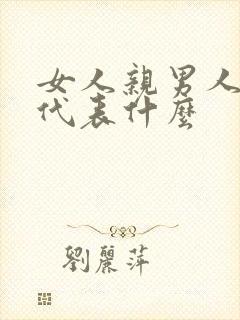 女人親男人
代表什麼
劉麗萍